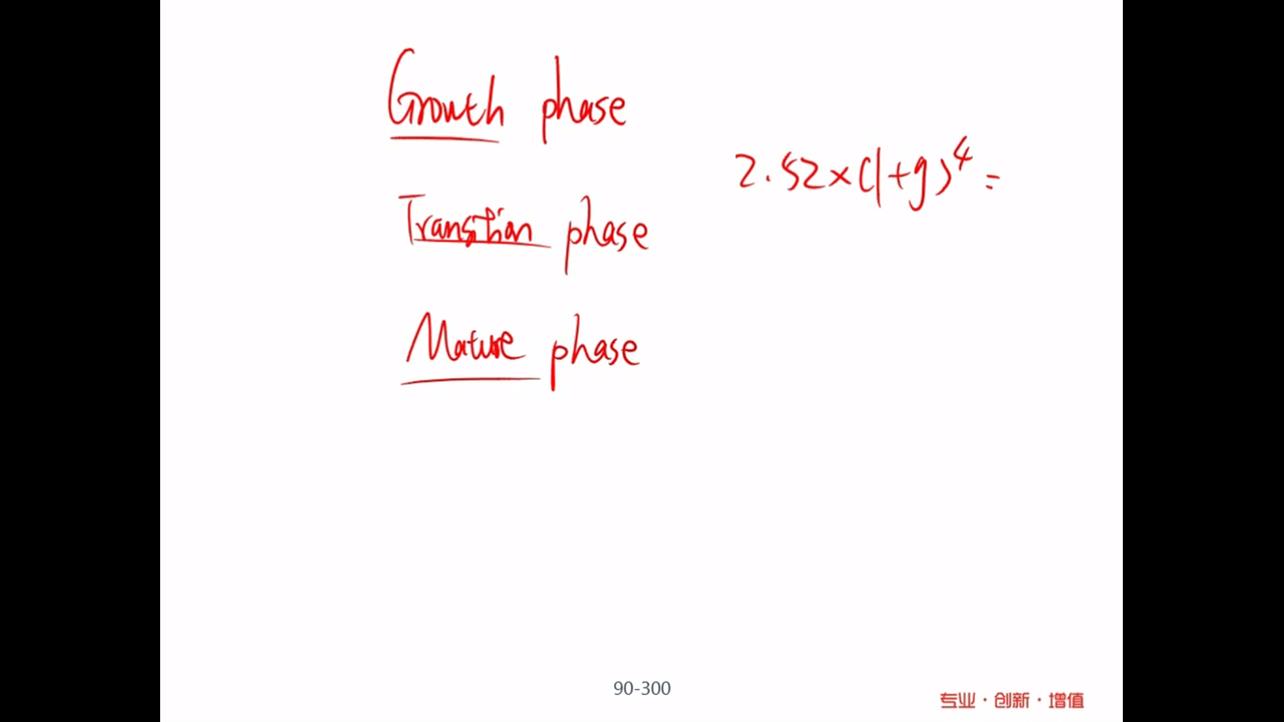 Growth phase
2.52×(1+g)^4=
Transition phase
Mature phase
90-300
专业·创新·增值